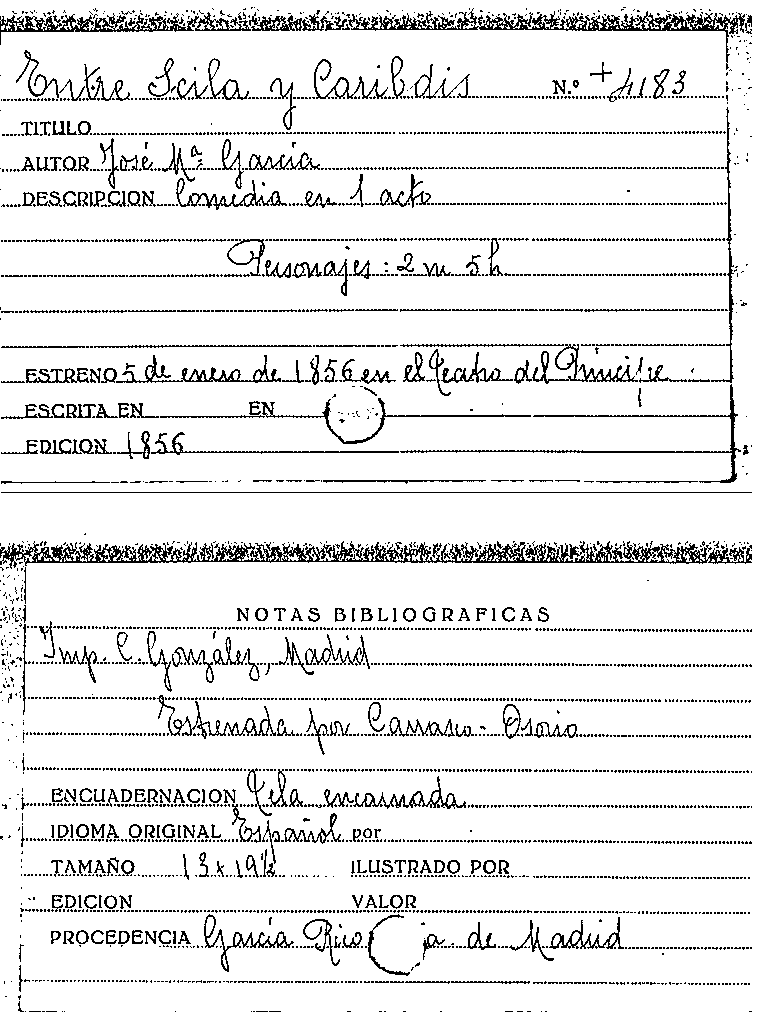 Entre Scila y Caribdis N.º + 4183
TITULO
AUTOR José Mª García
DESCRIPCION Comedia en 1 acto
Personajes: 2 m 5 h
ESTRENO 5 de enero de 1856 en el Teatro del Príncipe
ESCRITA EN EN
EDICION 1856
NOTAS BIBLIOGRAFICAS
Imp. C. González, Madrid
Estrenada por Carrasco - Osorio
ENCUADERNACION Tela encarnada
IDIOMA ORIGINAL Español por
TAMAÑO 13 x 19½ ILUSTRADO POR
EDICION VALOR
PROCEDENCIA García Rico ja de Madrid